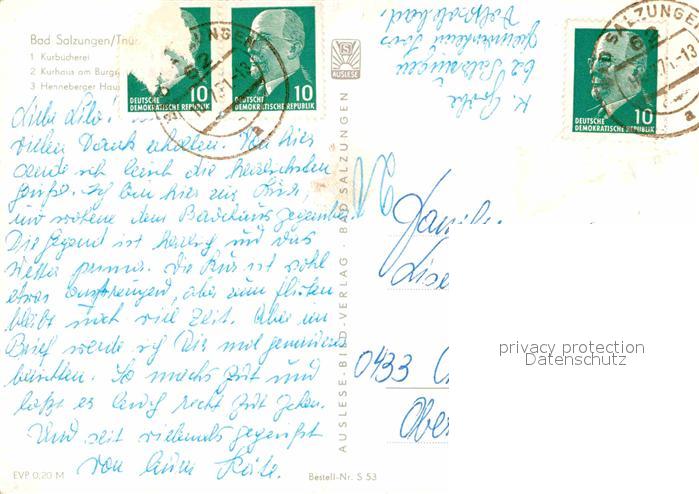 Bad Salzungen/Thür
1 Kurbücherei
2 Kurhaus am Burgs
3 Henneberger Haus
DEUTSCHE
DEMOKRATISCHE REPUBLIK 10
DEUTSCHE
DEMOKRATISCHE REPUBLIK 10
DEUTSCHE
DEMOKRATISCHE REPUBLIK 10
BAD SALZUNGEN
62
a
AUSLESE
K.
62 Salzungen
Liebe Lilo!
vielen Dank erhalten. Von hier
sende ich Euch die herzlichsten
Grüße. Ich bin hier zur Kur,
und wohne dem Badehaus gegenüber.
Die Gegend ist herrlich und das
Wetter prima. Die Kur ist wohl
etwas anstrengend, aber zum
bleibt noch viel Zeit. Aber im
Brief werde ich Dir mal genaueres
berichten. So machs gut und
laßt es Euch recht gut gehen.
Und seit vielmals gegrüßt
von Eurer Käte.
AUSLESE-BILD-VERLAG · BAD SALZUNGEN
Familie
Lise
0433
Ober
privacy protection
Datenschutz
EVP 0,20 M
Bestell-Nr. S 53